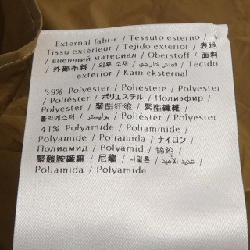 External fabric / Tessuto esterno /
Tissu extérieur / Tejido exterior / 表地
Внешний материал / Oberstoff / 面料
/ 外部布料 / Tecido
exterior / Kain eksternal
59% Polyester / Poliestere / Polyester
/ Poliéster / ポリエステル / Полиэфир /
Polyester / 聚酯纤维 / 聚酯纖維 /
폴리에스터 / Poliéster / Polyester
41% Polyamide / Poliammide /
Polyamide / Poliamida / ナイロン /
Полиамид / Polyamid / 锦纶 /
聚醯胺纖維 / 尼龍 /
Poliamida / Polyamide